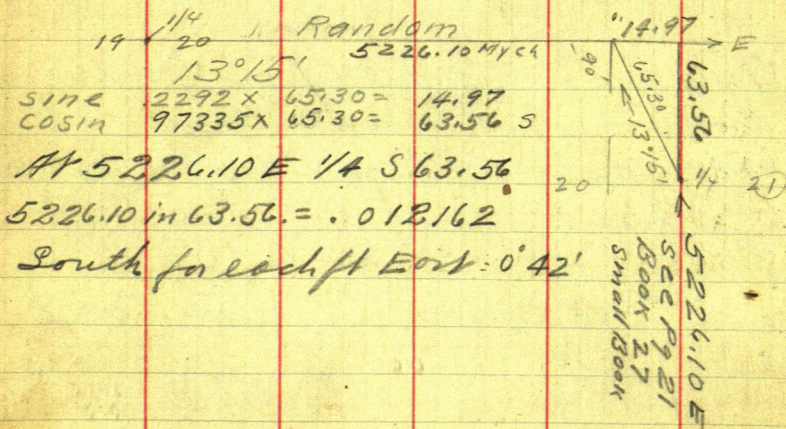 1/4 Random "14.97
19 20 5226.10 Mych E
13°15'
sine .2292 x 65.30 = 14.97
cosin 97335 x 65.30 = 63.56 S
At 5226.10 E 1/4 S 63.56
5226.10 in 63.56. = . 012162
South for each ft East = 0°42'
90
65.30
13°15'
63.56
20 1/4 21
5226.10 E
See Pg 21
Book 27
Small Book